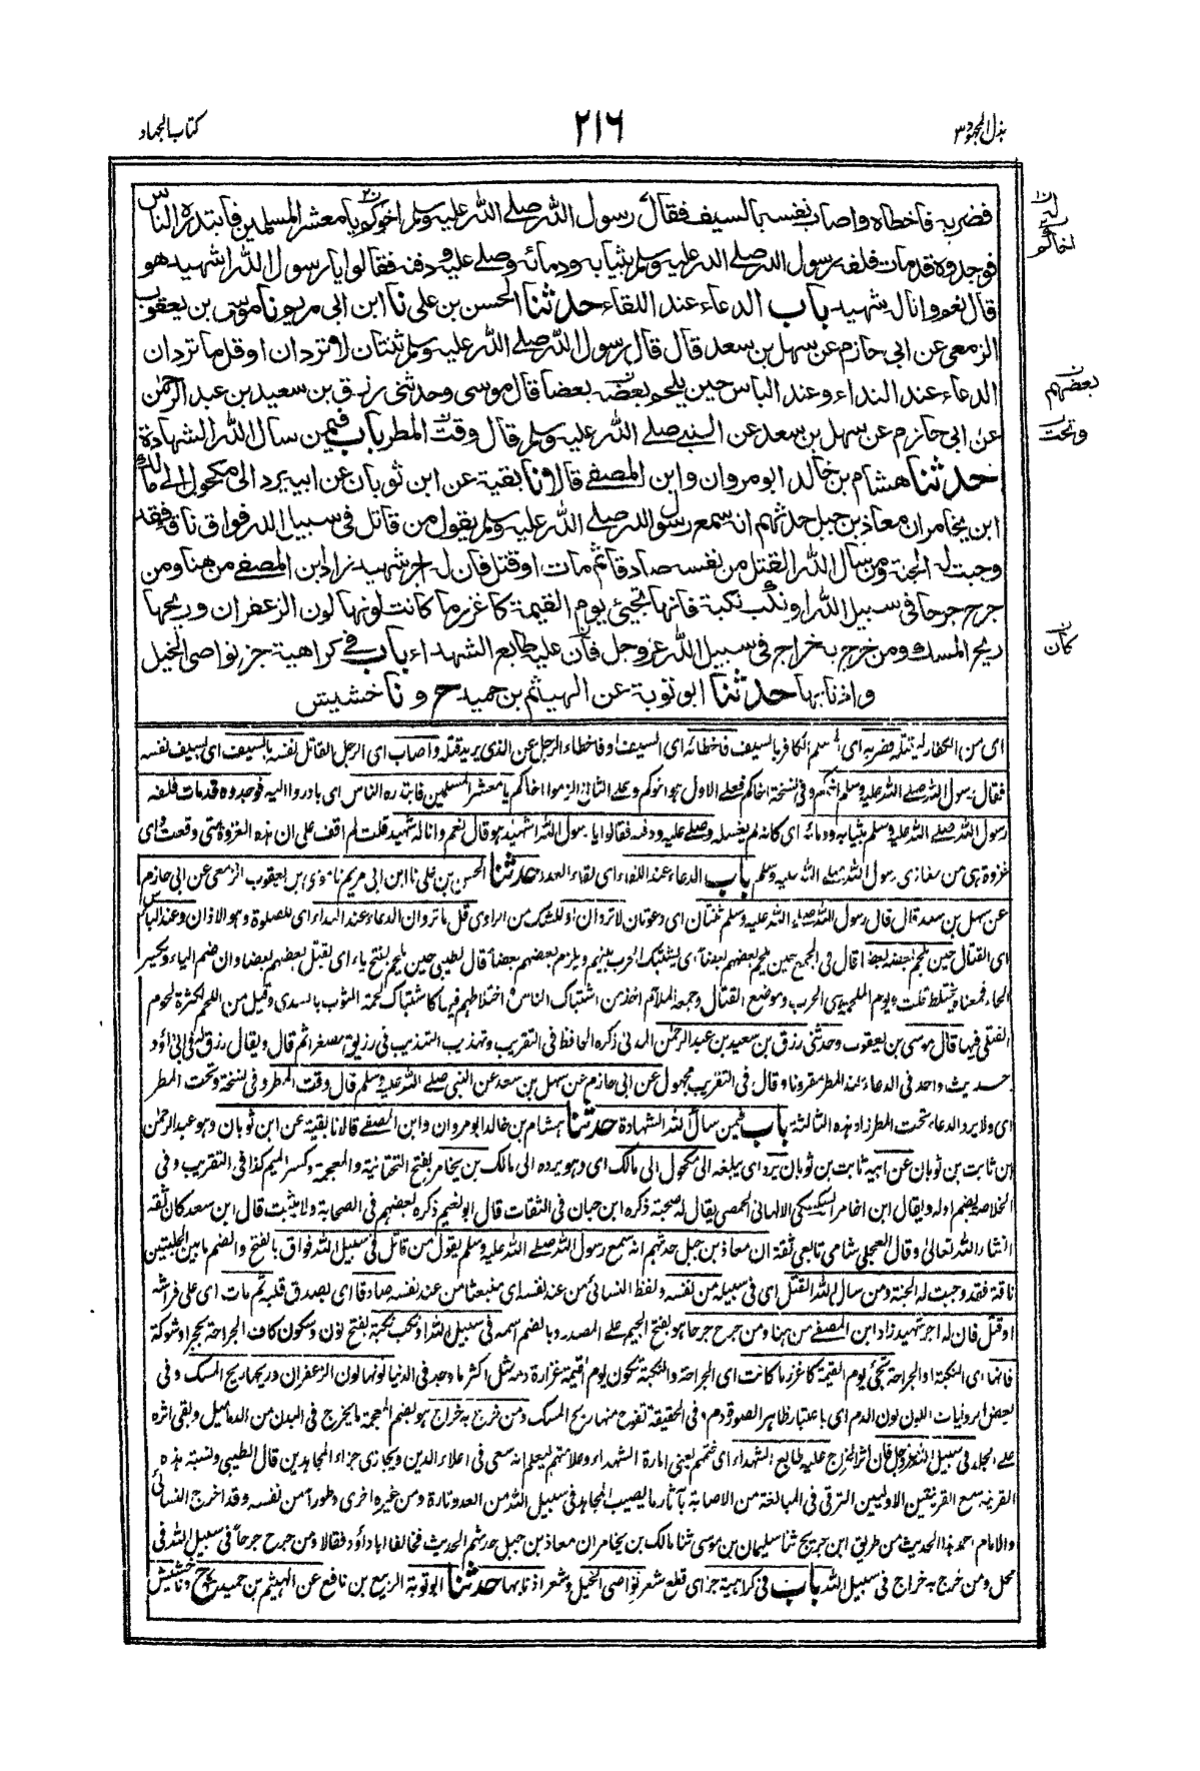 بذل المجهود ٣
٢١٦
كتاب الجهاد
فضربه فاخطاه واصاب نفسه بالسيف فقال رسول الله صلے الله عليه وسلم اخوكم يا معشر المسلمين فابتدره الناس
فوجدوه قد مات فلفه رسول الله صلے الله عليه وسلم بثيابه ودمائه وصلے عليه ودفنه فقالوا يا رسول الله اشهيد هو
قال نعم وانا له شهيد باب الدعاء عند اللقاء حدثنا الحسن بن علي نا ابن ابي مريم نا موسى بن يعقوب
الزمعي عن ابي حازم عن سهل بن سعد قال قال رسول الله صلے الله عليه وسلم ثنتان لا تردان او قل ما تردان
الدعاء عند النداء وعند الباس حين يلحم بعضه بعضا قال موسى وحدثني رزق بن سعيد بن عبد الرحمٰن
عن ابي حازم عن سهل بن سعد عن النبي صلے الله عليه وسلم قال وقت المطر باب فيمن سال الله الشهادة
حدثنا هشام بن خالد ابو مروان وابن المصفے قالا نا بقية عن ابن ثوبان عن ابيه يرد الى مكحول الے مالك
ابن يخامر ان معاذ بن جبل حدثهم انه سمع رسول الله صلے الله عليه وسلم يقول من قاتل في سبيل الله فواق ناقة فقد
وجبت له الجنة ومن سال الله القتل من نفسه صادقا ثم مات او قتل فان له اجر شهيد زاد ابن المصفے من هنا ومن
جرح جرحا في سبيل الله او نكب نكبة فانها تجيئ يوم القيمة كاغزر ما كانت لونها لون الزعفران وريحها
ريح المسك ومن خرج به خراج في سبيل الله عز وجل فان عليه طابع الشهداء باب في كراهية جز نواصي الخيل
واذنابها حدثنا ابو توبة عن الهيثم بن حميد ح و نا خشيش
اخاكم
بعضهم
وتحت
كان
اي من الكفار ليقتله فضربه اي المسلم الكافر بالسيف فاخطائه اي السيف او فاخطاء الرجل عن الذي يريد قتله واصاب اي الرجل القاتل نفسه بالسيف اي بسيف نفسه
فقال رسول الله صلے الله عليه وسلم اخوكم وفي نسخة اخاكم فعلے الاول هو اخوكم وعلے الثاني الزموا اخاكم يا معشر المسلمين فابتدره الناس اي بادروا اليه فوجدوه قد مات فلفه
رسول الله صلے الله عليه وسلم بثيابه ودمائه اي كانه لم يغسله وصلے عليه ودفنه فقالوا يا رسول الله اشهيد هو قال نعم وانا له شهيد قلت لم اقف على ان هذه الغزوة متى وقعت واي
غزوة هي من مغازي رسول الله صلے الله عليه وسلم باب الدعاء عند اللقاء اي لقاء العدو حدثنا الحسن بن علي نا ابن ابي مريم نا موسى بن يعقوب الزمعي عن ابي حازم
عن سهل بن سعد قال قال رسول الله صلے الله عليه وسلم ثنتان اي دعوتان لا تردان او للشك من الراوي قل ما تردان الدعاء عند النداء اي للصلوة وهو الاذان وعند الباس
اي القتال حين يلحم بعضه بعضا قال في المجمع حين يلحم بعضهم بعضا اي يشتبك الحرب بينهم ويلزم بعضهم بعضا قال لطيبي حين يلحم بفتح ياء اي يقتل بعضهم بعضا وان ضم الياء وبكسر
الحاء فمعناه يختلط قلت ويوم الملحمة هي الحرب وموضع القتال وجمعه الملاحم اخذ من اشتباك الناس واختلاطهم فيها كاشتباك لحمة الثوب بالسدى وقيل من اللحم لكثرة لحوم
القتلى فيها قال موسى بن يعقوب وحدثني رزق بن سعيد بن عبد الرحمن المدني ذكره الحافظ في التقريب وتهذيب التهذيب في رزيق مصغرا ثم قال ويقال رزق له في ابي داؤد
حديث واحد في الدعاء عند المطر مقرونا وقال في التقريب مجهول عن ابي حازم عن سهل بن سعد عن النبي صلے الله عليه وسلم قال وقت المطر وفي نسخة وتحت المطر
اي ولا يرد الدعاء تحت المطر زاد هذه الثالثة باب فيمن سأل الله الشهادة حدثنا هشام بن خالد ابو مروان وابن المصفے قالا نا بقية عن ابن ثوبان وهو عبد الرحمن
ابن ثابت بن ثوبان عن ابيه ثابت بن ثوبان يرد اي يبلغه الى مكحول الى مالك اي وهو يرده الى مالك بن يخامر بفتح التحتانية والمعجمة وكسر الميم كذا في التقريب وفي
الخلاصة بضم اوله ويقال ابن اخامر السكسكي الالهاني الحمصي يقال له صحبة ذكره ابن حبان في الثقات قال ابو نعيم ذكره بعضهم في الصحابة ولا يثبت قال ابن سعد كان ثقة
انشاء الله تعالى وقال العجلي شامي تابعي ثقة ان معاذ بن جبل حدثهم انه سمع رسول الله صلے الله عليه وسلم يقول من قاتل في سبيل الله فواق بالفتح والضم ما بين الحلبتين
ناقة فقد وجبت له الجنة ومن سال الله القتل اي في سبيله من نفسه ولفظ النسائي من عند نفسه اي منبعثا من عند نفسه صادقا اي بصدق قلبه ثم مات اي على فراشه
او قتل فان له اجر شهيد زاد ابن المصفے من هنا ومن جرح جرحا هو بفتح الجيم على المصدر وبالضم اسمه في سبيل الله او نكب نكبة بفتح نون وسكون كاف الجراحة بحجر او شوكة
فانها اي النكبة او الجراحة تجئ يوم القيمة كاغزر ما كانت اي الجراحة والنكبة تكون يوم القيمة غزارة دمه مثل اكثر ما وجد في الدنيا لونها لون الزعفران وريحها ريح المسك وفي
بعض الروايات اللون لون الدم اي باعتبار ظاهر الصورة دم وفي الحقيقة تفوح منها ريح المسك ومن خرج به خراج هو بضم المعجمة ما يخرج في البدن من الدماميل وبقي اثره
على الجلد في سبيل الله عز وجل فان اثر الخراج عليه طابع الشهداء اي ختمهم يعني امارة الشهداء وعلامتهم ليعلم انه سعى في اعلاء الدين ويجازى جزاء المجاهدين قال الطيبي ونسبة هذه
القرينة مع القرينتين الاوليين الترقي في المبالغة من الاصابة بآثار ما يصيب المجاهد في سبيل الله من العدو تارة ومن غيره اخرى وطورا من نفسه وقد اخرج النسائي
والامام احمد هذا الحديث من طريق ابن جريج ثنا سليمان بن موسى ثنا مالك بن يخامر ان معاذ بن جبل حدثهم الحديث فخالفا ابا داؤد فقالا ومن جرح جرحا في سبيل الله في
محل ومن خرج به خراج في سبيل الله باب في كراهية جز اي قطع شعر نواصي الخيل وشعر اذنابها حدثنا ابو توبة الربيع بن نافع عن الهيثم بن حميد ح ونا خشيش